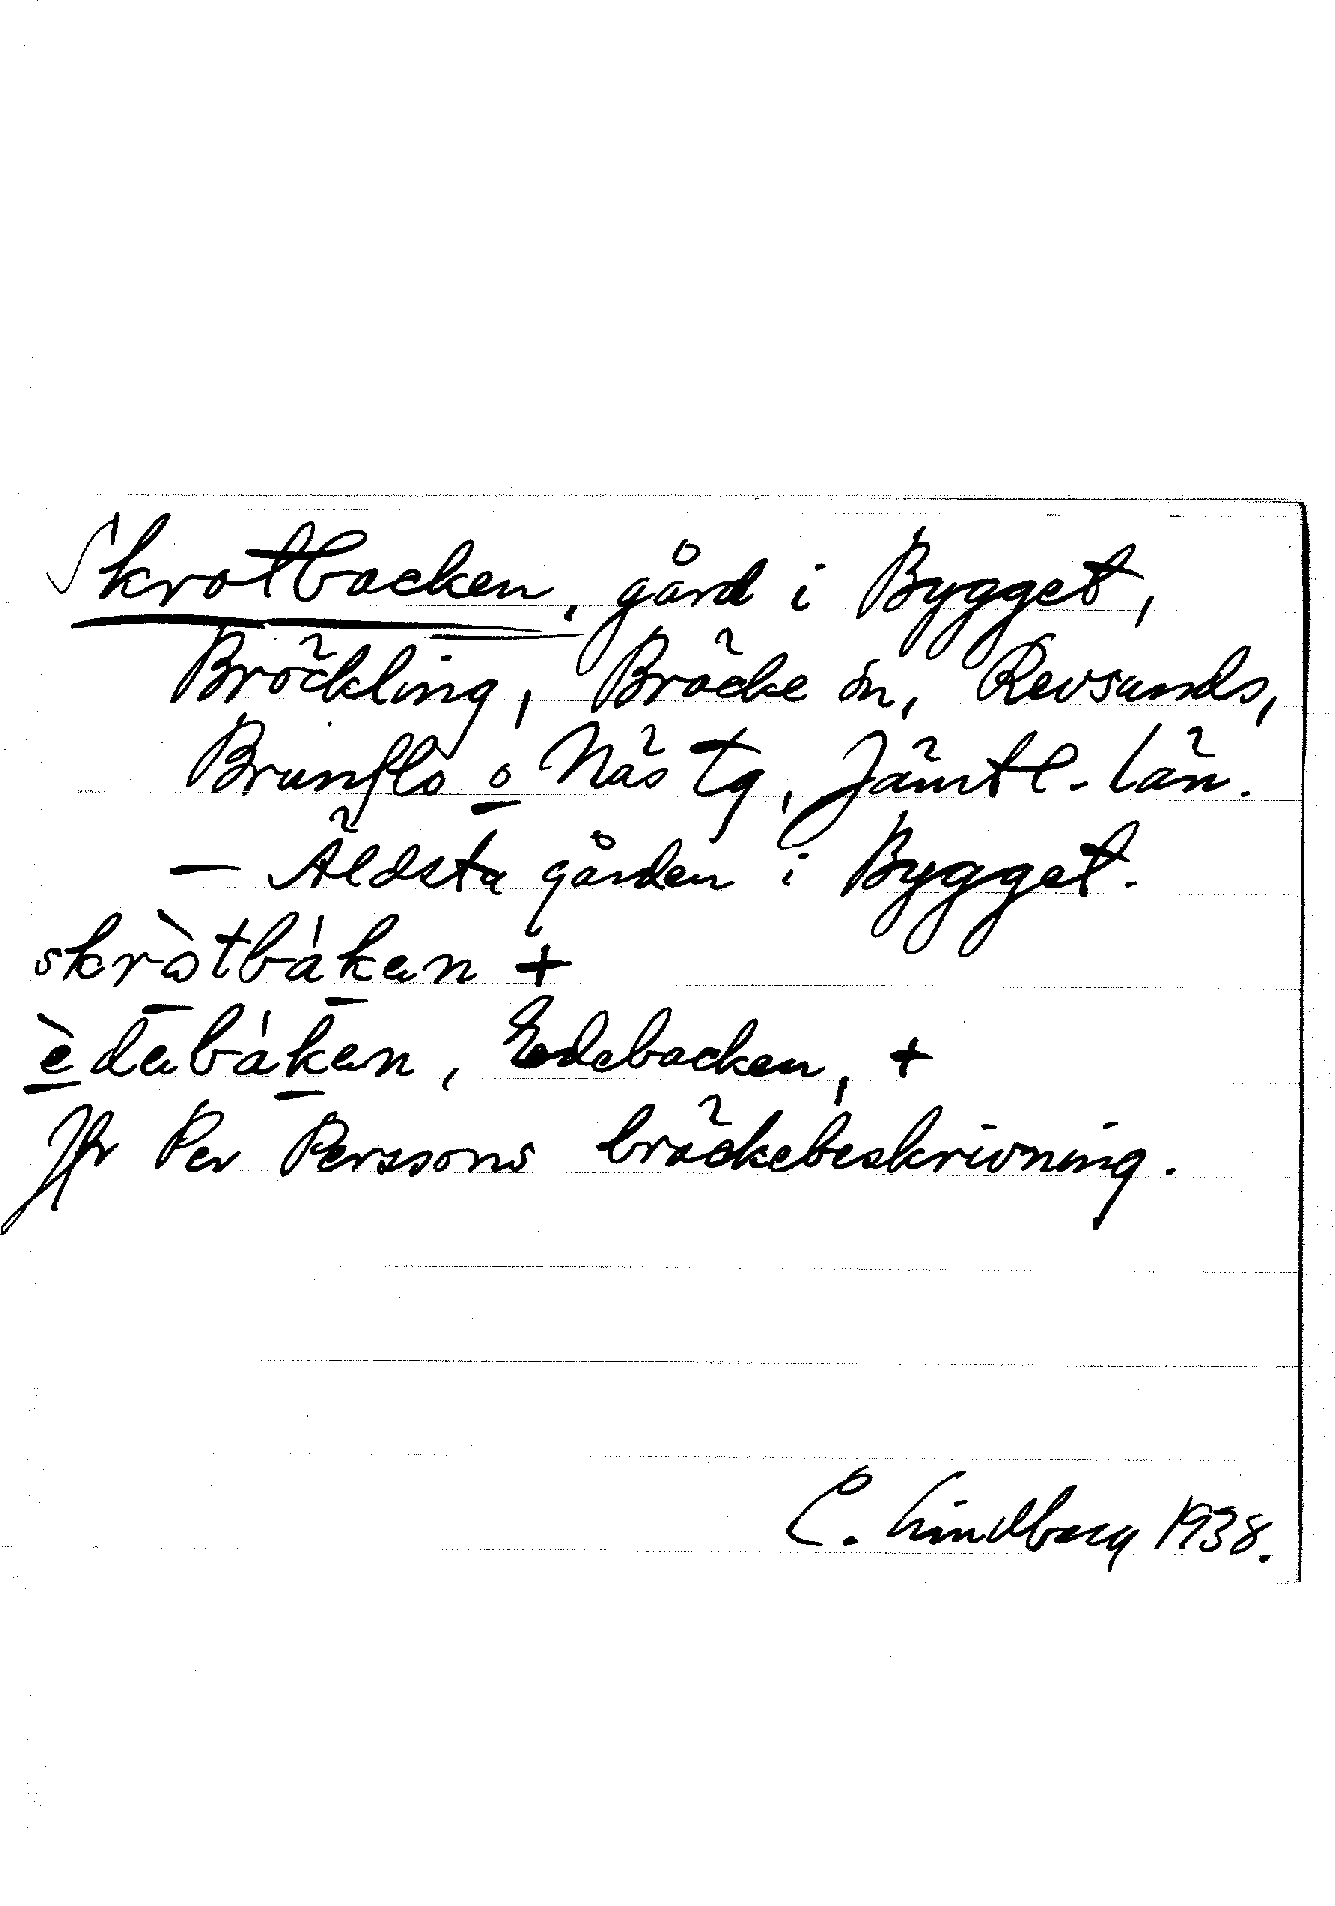 Skrotbacken, gård i Bygget,
Bröckling, Bräcke sn, Revsunds,
Brunflo o Näs tg, Jämtl. län.
— Äldsta gården i Bygget.
skròtbákan +
èdabákan, Edebacken, +
Jfr Per Perssons bräckebeskrivning.
C. Lindberg 1938.